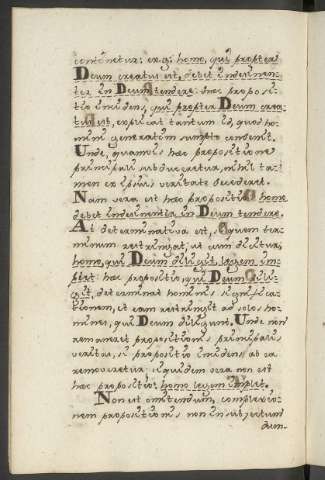 continetur: ex.g: homo, qui propter
Deum creatus est, debet indesinen-
ter in Deum tendere: haec proposi-
tio incidens, qui propter Deum crea-
tus est, explicat tantum id, quod ho-
mini generatim sumpto convenit.
Unde, quamvis haec propositione
principali subduceretur, nihil ta-
men ex ipsius veritate decederet.
Nam vera est haec propositio homo
debet indesinenter in Deum tendere.
At determinativa est, quem ter-
minum restringit, ut cum dicitur,
homo, qui Deum diligit, legem im-
plet: haec propositio, qui Deum dili-
git, determinat hominis significa-
tionem, et eam restringit ad solos ho-
mines, qui Deum diligunt. Unde non
remaneret propositionis principalis
veritas, si propositio incidens ab ea
removeretur: siquidem vera non est
haec propositio, homo legem implet.
Non est omittendum, complexio-
nem propositionis non in subjectum
dum-